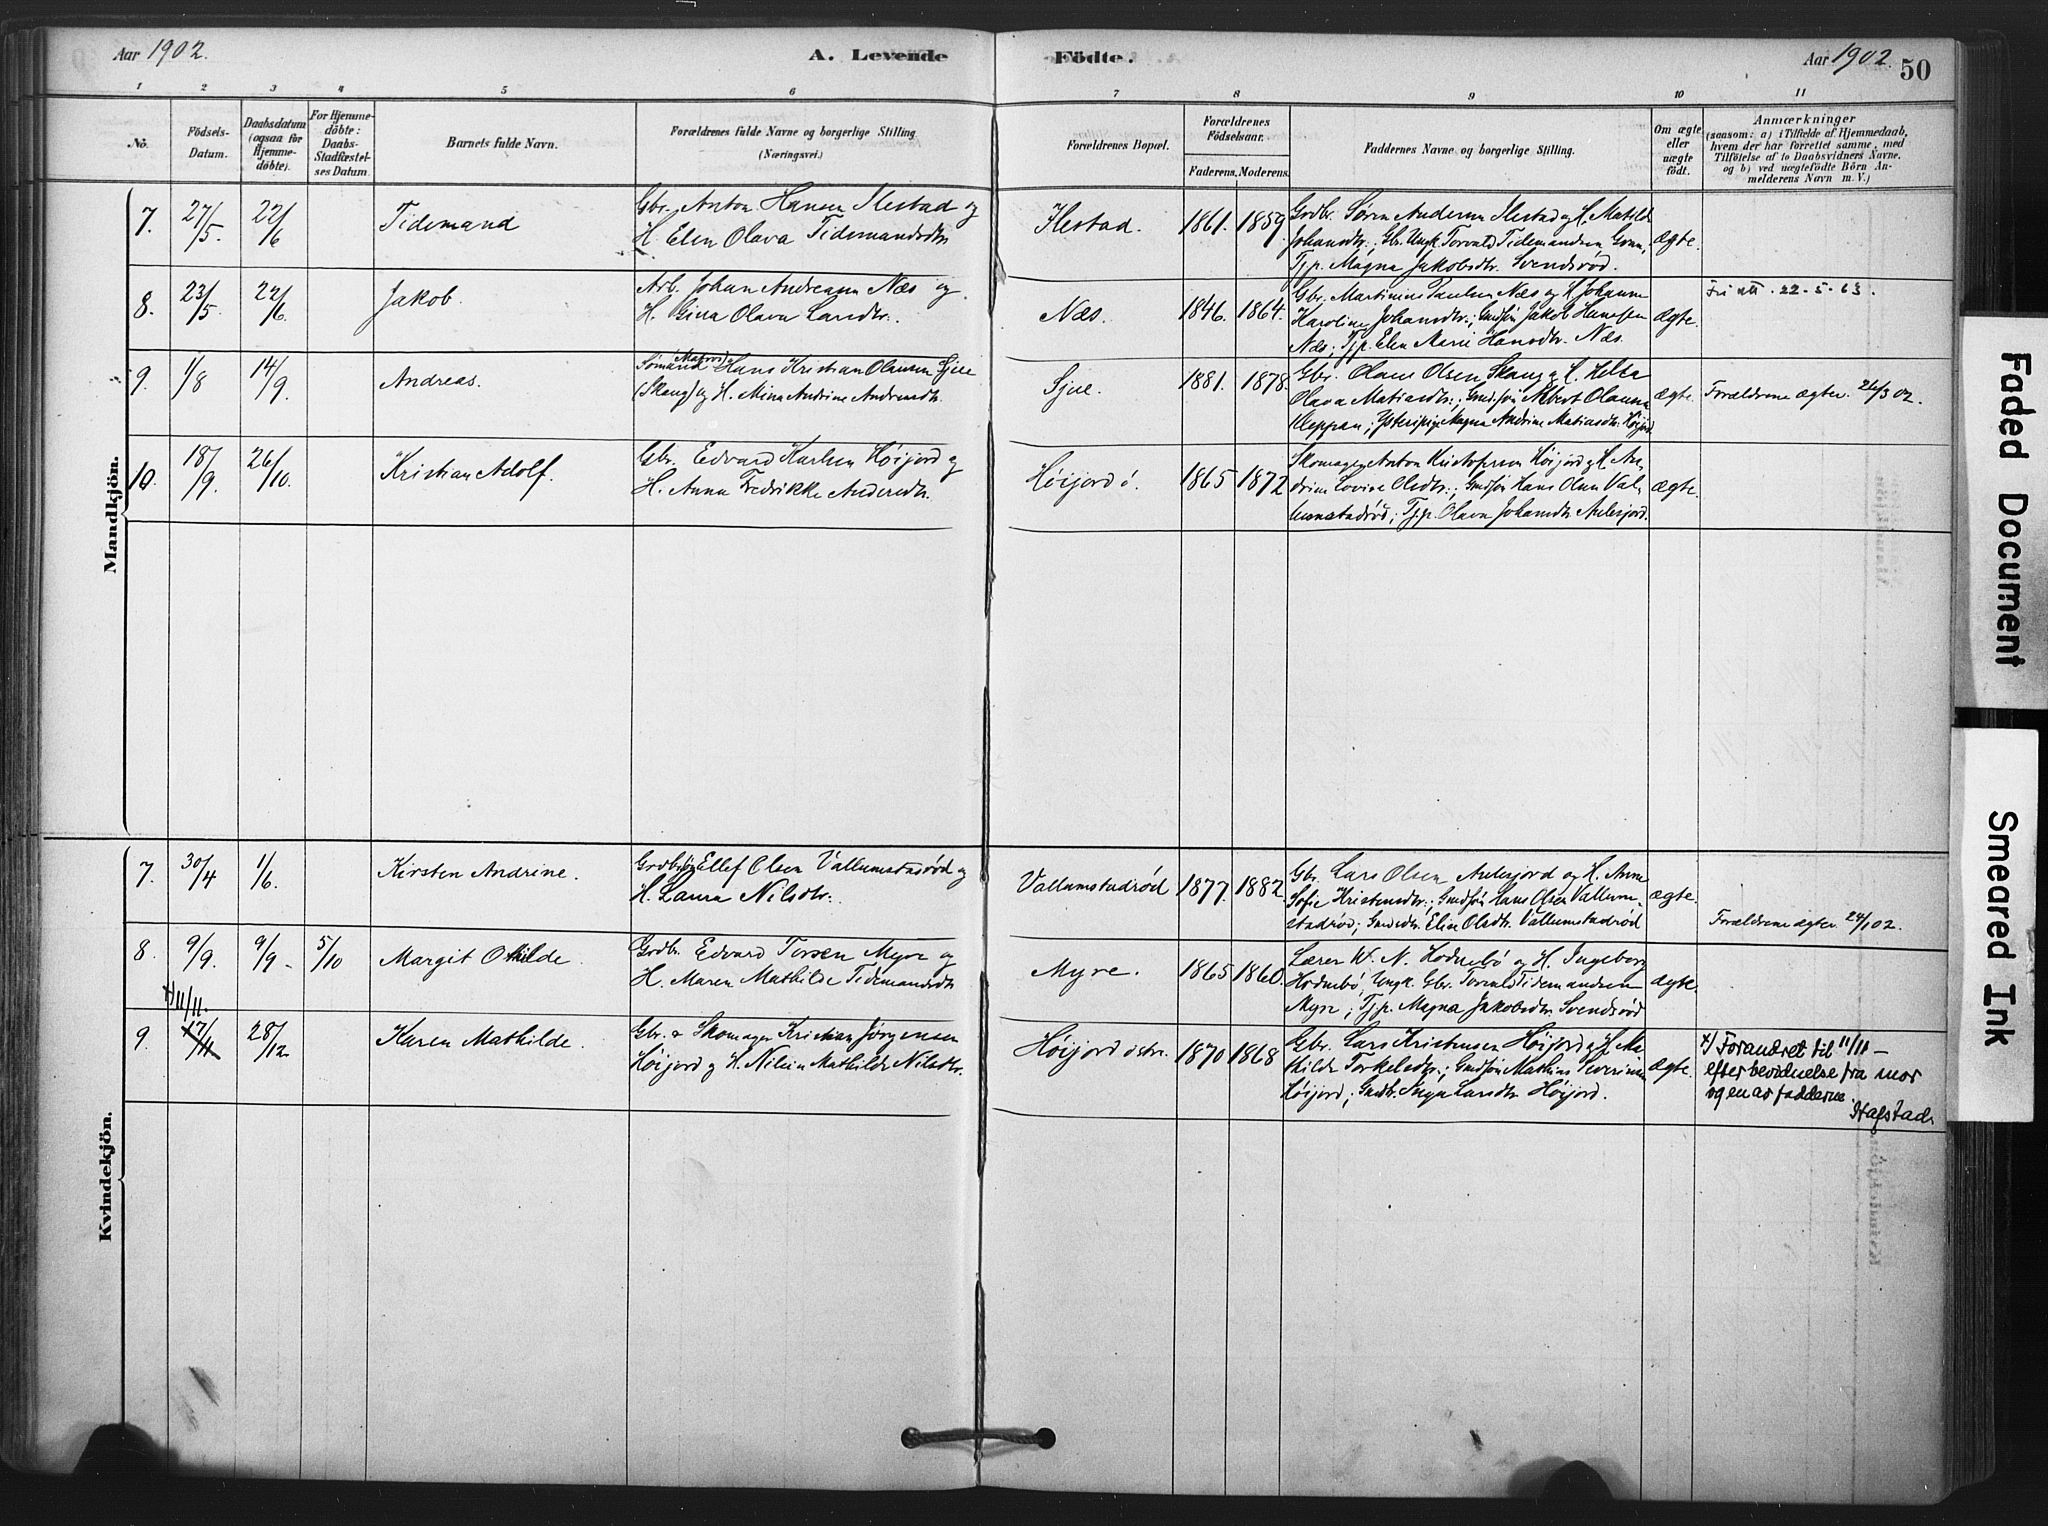 Aar 1902.
A. Levende Födte.
Aar 1902. 50
1 2 3 4 5 6 7 8 9 10 11
No.
Födsels-
Datum.
Daabsdatum
(ogsaa for
Hjemme-
döbte).
For Hjemme-
döbte:
Daabs-
Stadfæstel-
ses Datum.
Barnets fulde Navn.
Forældrenes fulde Navne og borgerlige Stilling.
(Næringsvei.)
Forældrenes Bopæl.
Forældrenes
Födselsaar.
Faderens. Moderens.
Faddernes Navne og borgerlige Stilling.
Om ægte
eller
uægte
födt.
Anmærkninger
(saasom: a) i Tilfælde af Hjemmedaab,
hvem der har forrettet samme, med
Tilföielse af to Daabsvidners Navne,
og b) ved uægtefödte Börn An-
melderens Navn m. V.)
Mandkjön.
7. 27/5. 22/6 Tidemand
Gbr. Anton Hansen Ilestad og
H. Elen Olava Tidemandsdtr.
Ilestad. 1861. 1859.
Grdbr. Søren Andersen Ilestad og H. Matilde
Johansdtr.; Gbr. Ungk. Torvald Tidemandsen
Tjp. Magna Jakobsdtr. Svendsrød.
ægte.
8. 23/5. 22/6. Jakob.
Arb. Johan Andreasen Næs og
H. Gina Olava Larsdtr.
Næs. 1846. 1864.
Gbr. Martinius Paulsen Næs og H. Johanne
Karoline Johansdtr.; Grdsøn Jakob Hansen
Næs; Tjp. Elen Marie Hansdtr. Næs.
ægte.
Fri att. 22-5-63.
9. 1/8 14/9. Andreas.
Sømand Hans Kristian Olausen Sjue
(Skaug) og H. Mina Andrine Andersdtr.
Sjue. 1881. 1878.
Gbr. Olaus Olsen Skaug og H. Helta
Olava Matiasdtr.; Grdsøn Albert Olausen
Kleppan; Andrine Matiasdtr. Høijord
ægte.
Forældrene ægtev. 26/3 02.
10. 18/9. 26/10. Kristian Adolf.
Gbr. Edvard Karlsen Høijord og
H. Anna Fredrikke Andersdtr.
Høijord ö. 1865 1872
Skomager Anton Kristofersen Høijord og H. An-
drine Lovise Olsdtr.; Grdsøn Hans Olsen Val-
lumstadrød; Tjp. Olava Johansdtr. Aulesjord.
ægte.
Kvindekjön.
7. 30/4 1/6. Kirsten Andrine.
Grdbrsøn Ellef Olsen Vallumstadrød og
H. Laura Nilsdtr.
Vallumstadrød 1877. 1882.
Gbr. Lars Olsen Aulesjord og H. Anne
Sofie Kristensdtr.; Grdsøn Hans Olsen Vallum-
stadrød; Grdsdtr. Elise Olsdtr. Vallumstadrød
ægte.
Forældrene ægtev. 24/1 02.
8. 9/9. 9/9. 5/10 Margit Othilde
Grdbr. Edvard Torsen Myre og
H. Maren Mathilde Tidemandsdtr.
Myre. 1865 1860.
Lærer W. N. Hodnebø og H. Ingeborg
Hodnebø, Ungk. Gbr. Torvald Tidemandsen
Myre; Tjp. Magna Jakobsdtr. Svendsrød
ægte.
x) 11/11.
9. 17/11 28/12. Karen Mathilde.
Gbr. & Skomager Kristian Jörgensen
Høijord og H. Nilsin Mathilde Nilsdtr.
Høijord østre. 1870 1868
Gbr. Lars Kristensen Høijord og H. Ma-
thilde Torkelsdtr.; Grdsøn Mathias Severinsen
Høijord; Grdsdtr. Inga Larsdtr. Høijord.
ægte.
x) Forandret til 11/11 –
efter bevidnelse fra mor
og en av fadderne.
Hafstad.
Faded Document
Smeared Ink